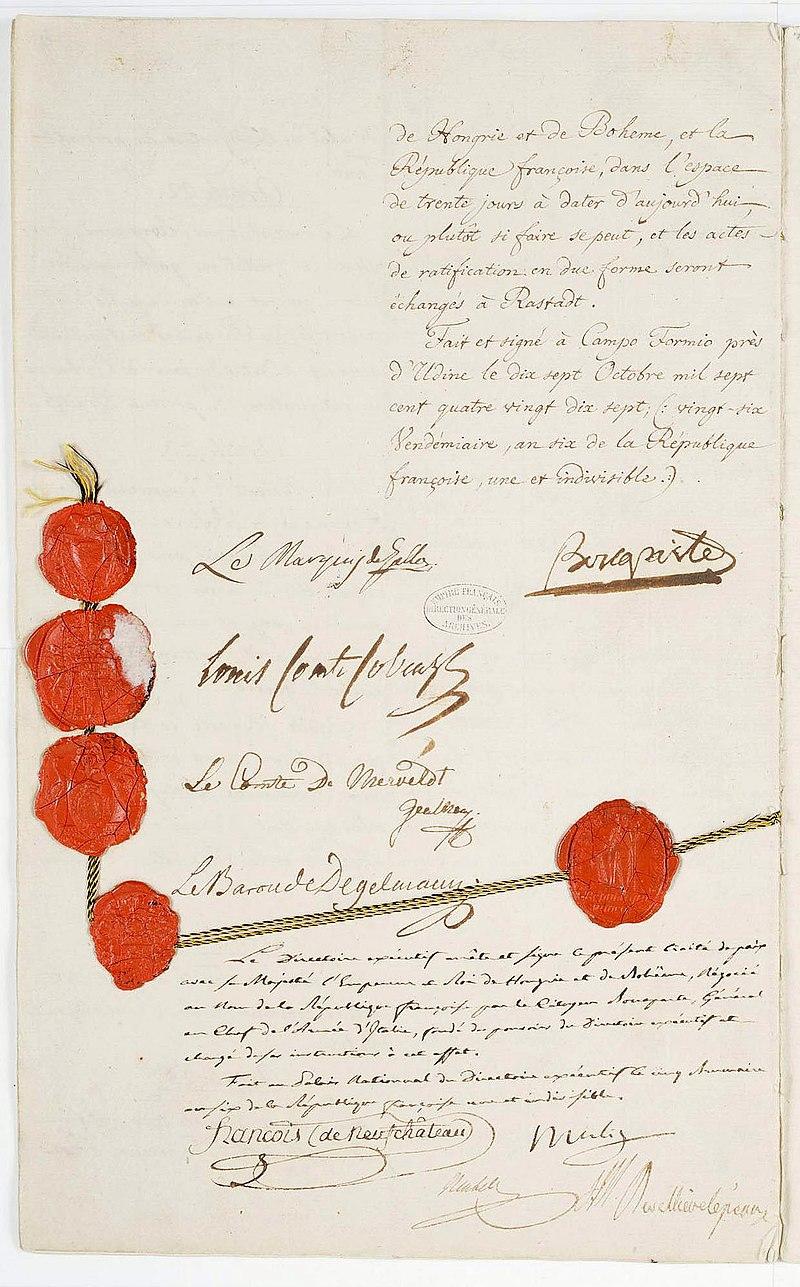 de Hongrie et de Boheme, et la
République françoise, dans l'espace
de trente jours à dater d'aujourd'hui,
ou plutôt si faire se peut, et les actes
de ratification en due forme seront
échangés à Rastadt.
Fait et signé à Campo Formio près
d'Udine le dix sept Octobre mil sept
cent quatre vingt dix sept; (: vingt-six
Vendémiaire, an six de la République
françoise, une et indivisible.:)
Le Marquis de Gallo.
Bonaparte
EMPIRE FRANÇAIS
DIRECTION GÉNÉRALE
DES
ARCHIVES.
Louis Comte Cobenzl
Le Comte De Merveldt
Le Baron de Degelmann
Le Directoire exécutif arrête et signe le présent traité de paix
avec sa Majesté l'Empereur et Roi de Hongrie et de Bohëme, négocié
au Nom de la République françoise par le Citoyen Bonaparte, Général
en Chef de l'Armée d'Italie, fondé de pouvoirs du Directoire exécutif et
chargé de ses instructions à cet effet.
Fait au Palais National du Directoire exécutif le cinq Brumaire
an six de la République françoise une et indivisible.
François (de neufchâteau)
Merlin
Rewbell
Revelliere lépeaux